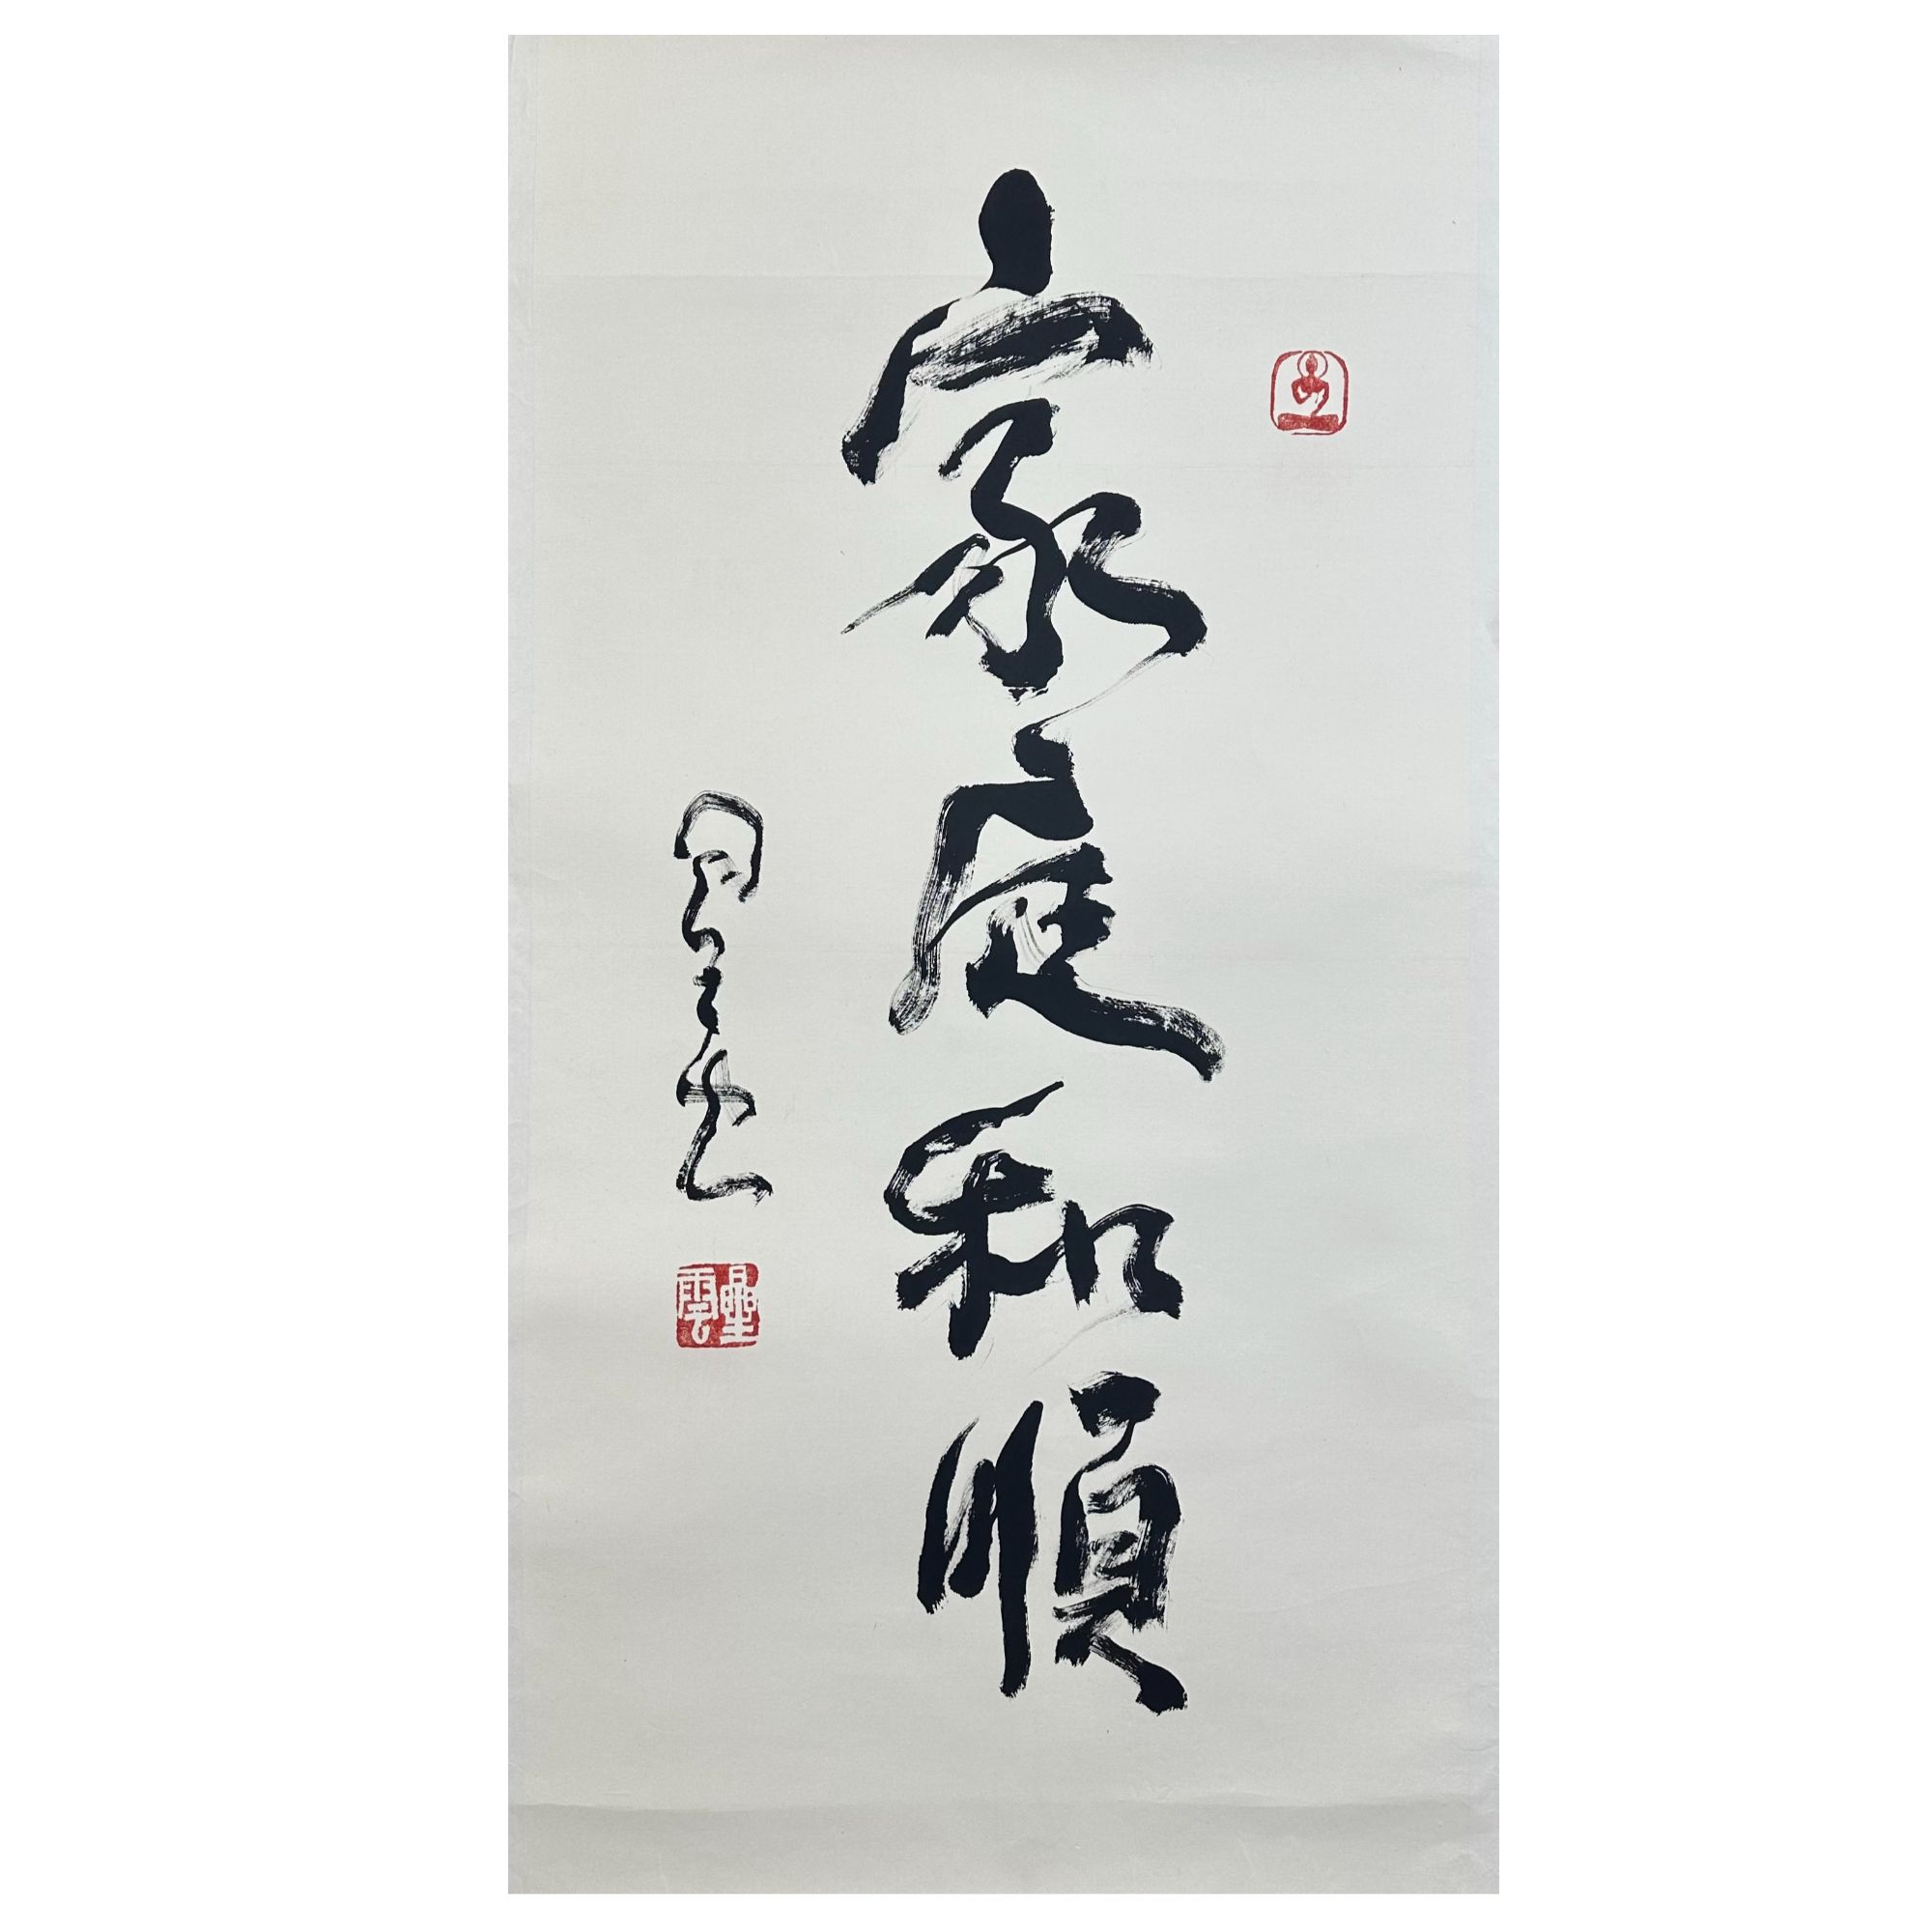 家庭和順
星雲
星雲